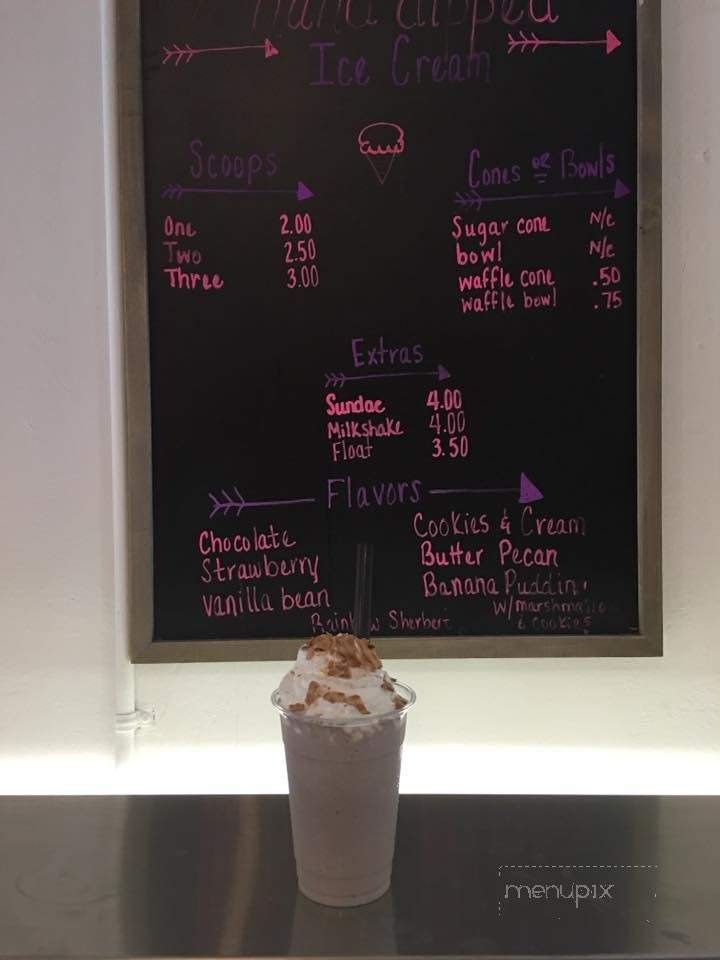 Hand dipped
Ice Cream
Scoops
One 2.00
Two 2.50
Three 3.00
Cones or Bowls
Sugar cone N/C
bowl N/C
waffle cone .50
waffle bowl .75
Extras
Sundae 4.00
Milkshake 4.00
Float 3.50
Flavors
Chocolate
Strawberry
Vanilla bean
Cookies & Cream
Butter Pecan
Banana Puddin'
w/marshmallo
& cookies
Rainbow Sherbert
menupix